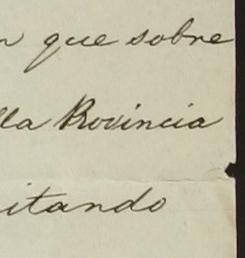 n que sobre
lla Provincia
itando